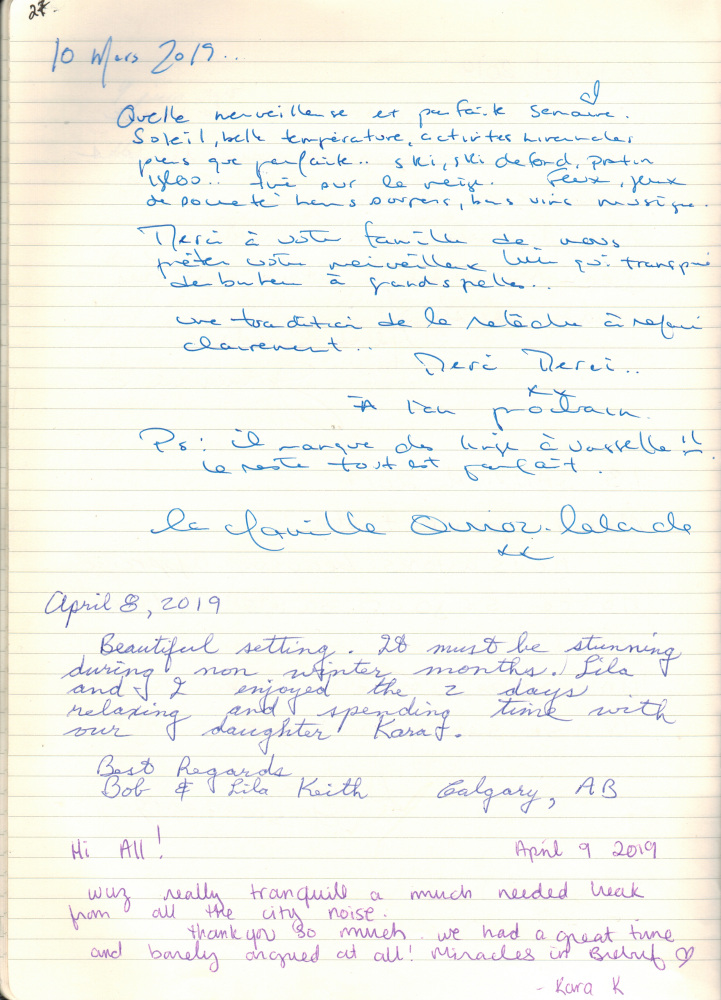 27.
10 Mars 2019..
Quelle merveilleuse et parfaite semaine.
Soleil, belle température, activités hivernales
plus que parfaite.. ski, ski de fond, patin
igloo.. sur la neige. Feux, jeux
de société bons soupers, bons vins musique.
Merci à votre famille de nous
prêter votre merveilleux lieu qui transpire
de bonheur à grandes pelles..
une tradition de la relâche à refaire
clairement..
Merci Merci..
xx
À l'an prochain.
Ps: il manque des linge à vaisselle !!
le reste tout est parfait.
la famille
xx
April 8, 2019
Beautiful setting. It must be stunning
during non winter months. Lila
and I enjoyed the 2 days
relaxing and spending time with
our daughter Kara.
Best Regards
Bob & Lila Keith Calgary, AB
Hi All! April 9 2019
wuz really tranquill a much needed break
from all the city noise.
thank you so much. we had a great time
and barely argued at all! Miracles in ♡
- Kara K